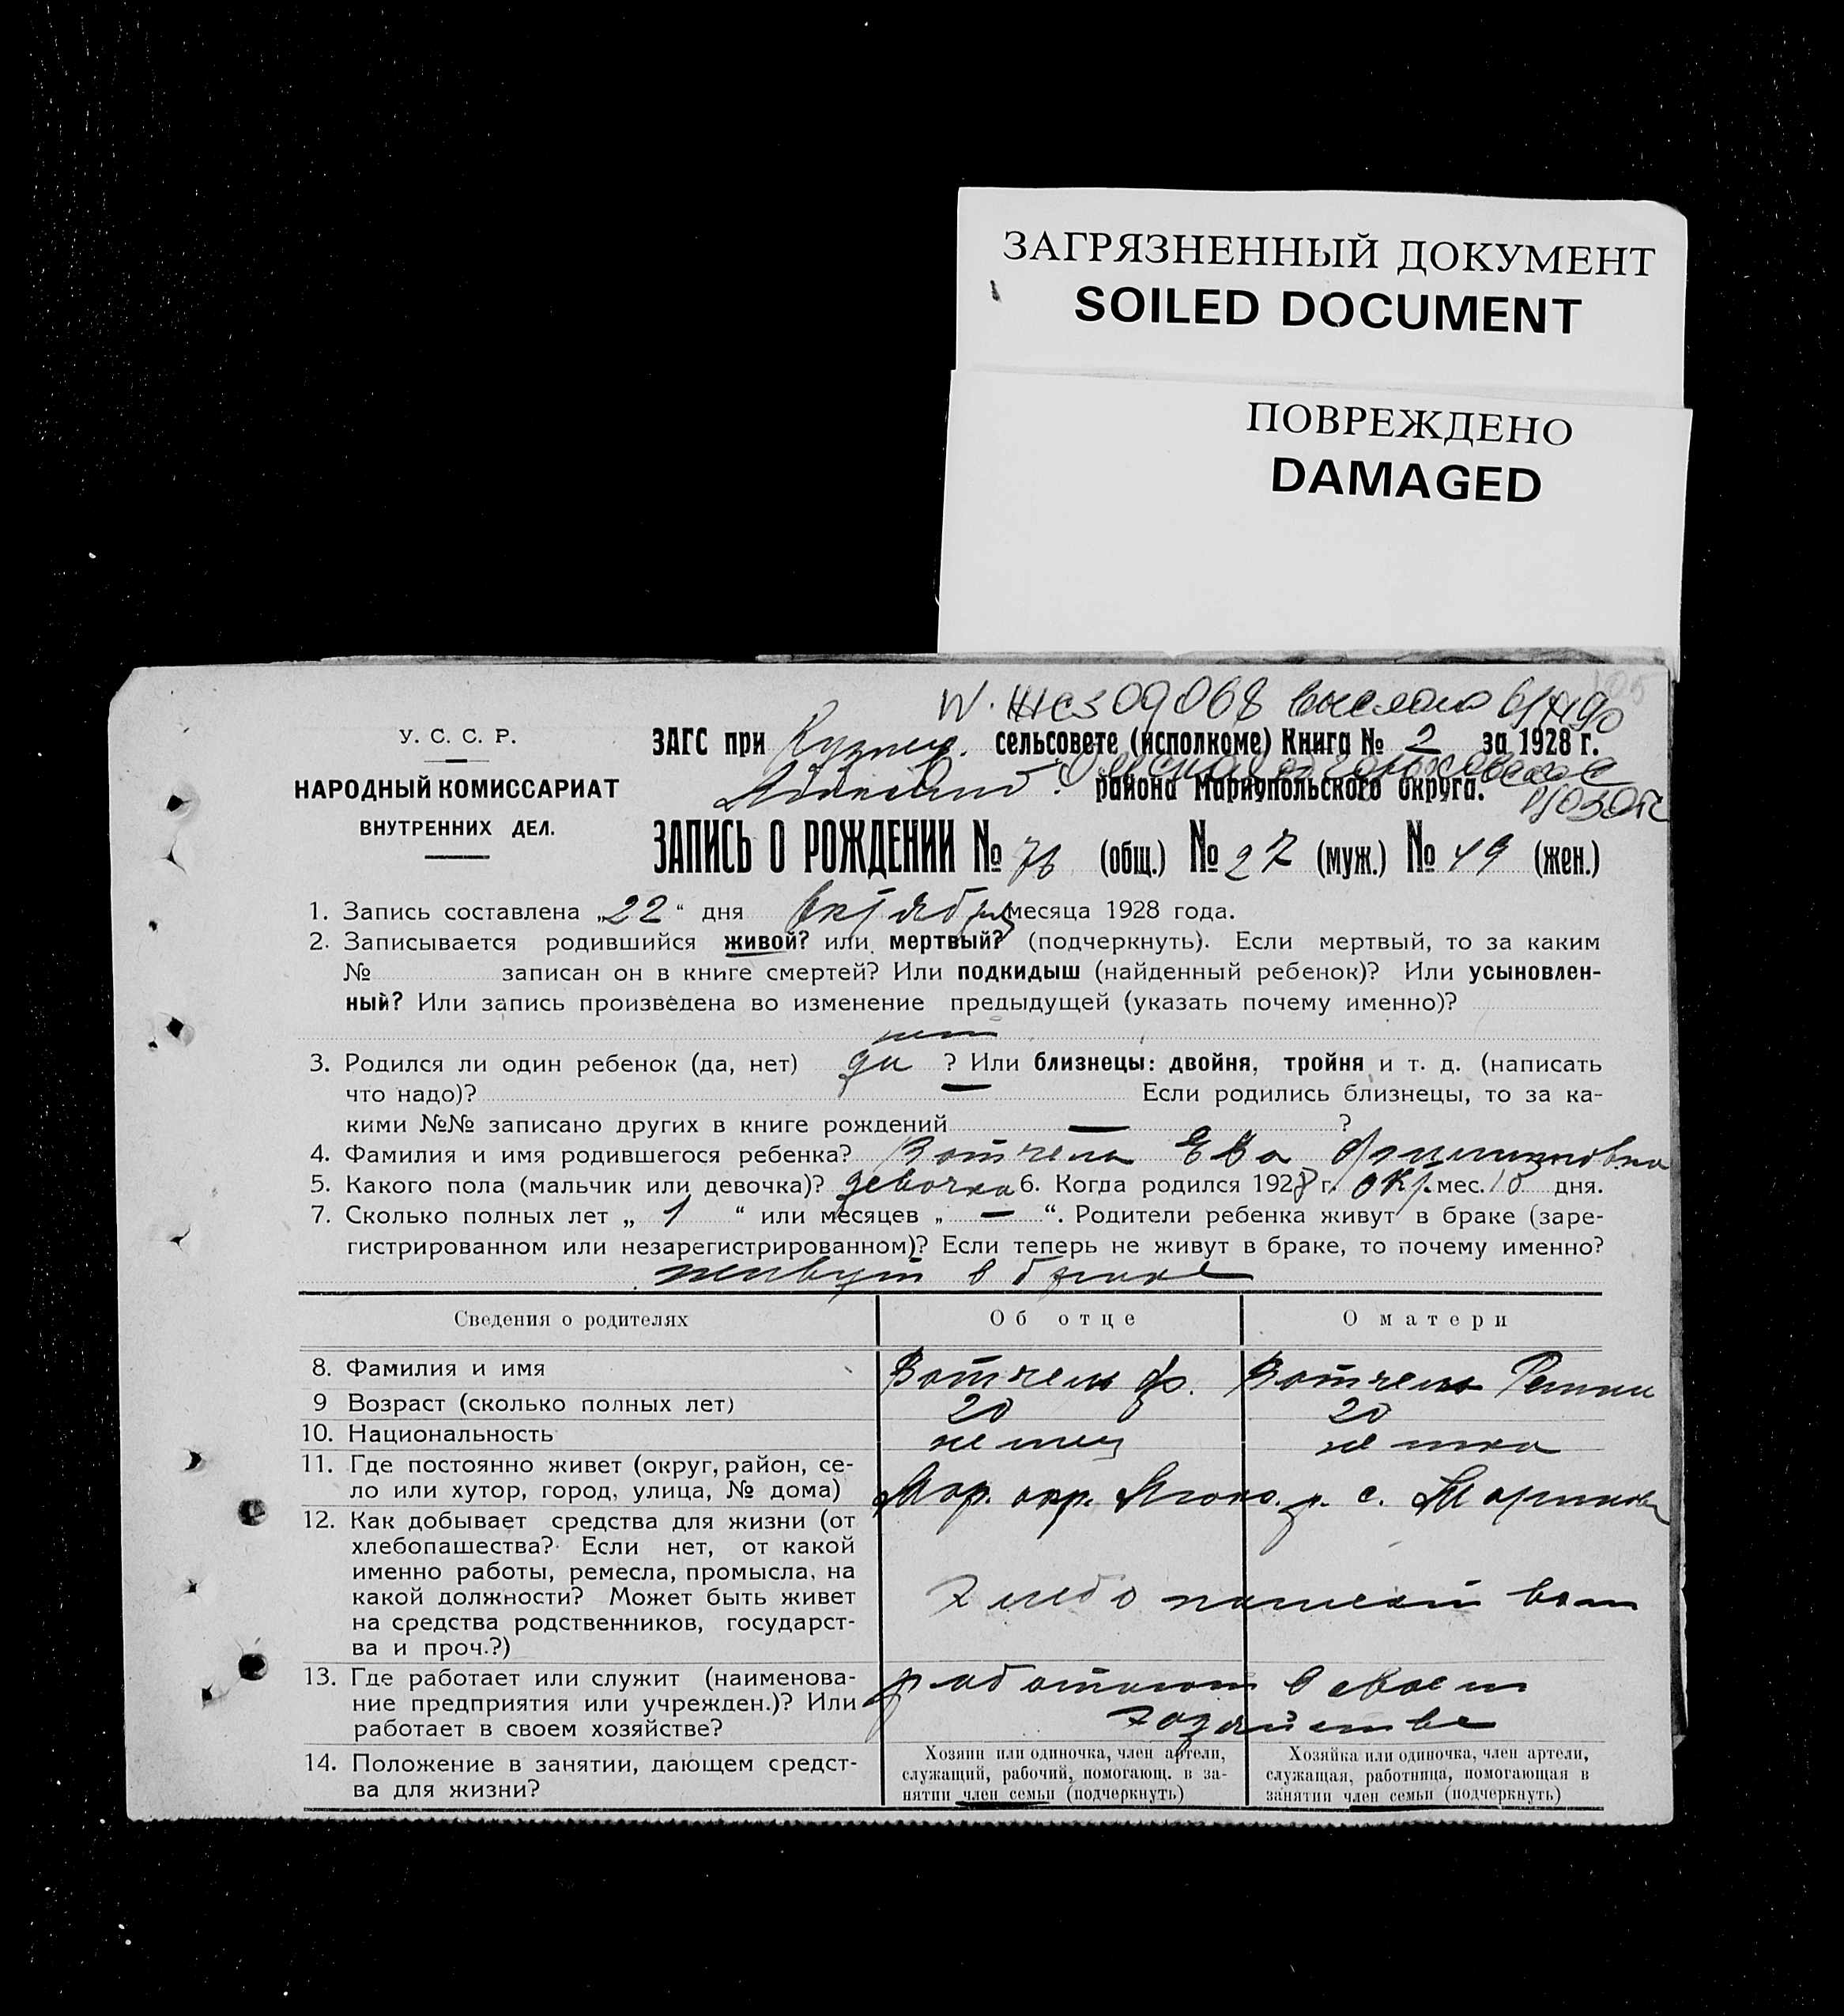 ЗАГРЯЗНЕННЫЙ ДОКУМЕНТ
SOILED DOCUMENT
ПОВРЕЖДЕНО
DAMAGED
105
09068 выслано
У. С. С. Р.
НАРОДНЫЙ КОМИССАРИАТ
ВНУТРЕННИХ ДЕЛ.
ЗАГС при Кузнец. сельсовете (исполкоме) Книга № 2 за 1928 г.
района Мариупольского округа.
ЗАПИСЬ О РОЖДЕНИИ № 76 (общ.) № 27 (муж.) № 49 (жен.)
1. Запись составлена „22“ дня октября месяца 1928 года.
2. Записывается родившийся живой? или мертвый? (подчеркнуть). Если мертвый, то за каким
№ записан он в книге смертей? Или подкидыш (найденный ребенок)? Или усыновлен-
ный? Или запись произведена во изменение предыдущей (указать почему именно)?
нет
3. Родился ли один ребенок (да, нет) да ? Или близнецы: двойня, тройня и т. д. (написать
что надо)? — Если родились близнецы, то за ка-
кими №№ записано других в книге рождений — ?
4. Фамилия и имя родившегося ребенка? Ева
5. Какого пола (мальчик или девочка)? девочка 6. Когда родился 1928 г. окт. мес. 10 дня.
7. Сколько полных лет „ 1 “ или месяцев „ — “. Родители ребенка живут в браке (заре-
гистрированном или незарегистрированном)? Если теперь не живут в браке, то почему именно?
живут в браке
Сведения о родителях Об отце О матери
8. Фамилия и имя ф.
9 Возраст (сколько полных лет) 20 20
10. Национальность немец немка
11. Где постоянно живет (округ, район, се-
ло или хутор, город, улица, № дома) Мар. окр. р. с.
12. Как добывает средства для жизни (от
хлебопашества? Если нет, от какой
именно работы, ремесла, промысла, на
какой должности? Может быть живет
на средства родственников, государст-
ва и проч.?)
хлебопашеством
13. Где работает или служит (наименова-
ние предприятия или учрежден.)? Или
работает в своем хозяйстве?
работают в своем
хозяйстве
14. Положение в занятии, дающем средст-
ва для жизни?
Хозяин или одиночка, член артели,
служащий, рабочий, помогающ. в за-
нятии член семьи (подчеркнуть)
Хозяйка или одиночка, член артели,
служащая, работница, помогающая в
занятии член семьи (подчеркнуть)